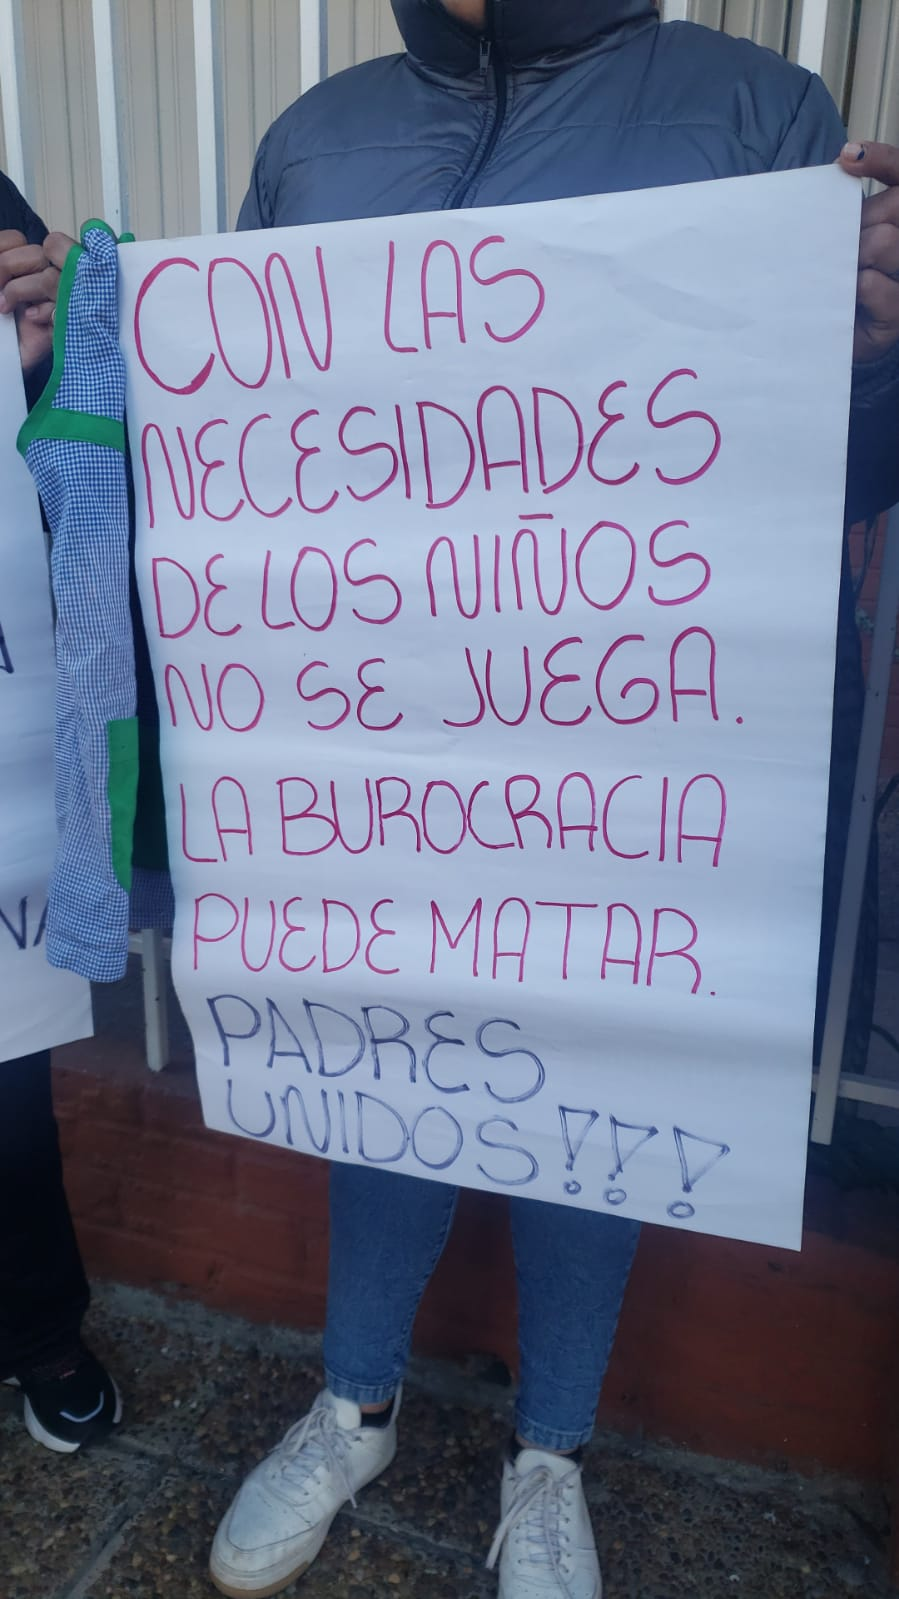 CON LAS
NECESIDADES
DE LOS NIÑOS
NO SE JUEGA.
LA BUROCRACIA
PUEDE MATAR.
PADRES
UNIDOS!!!